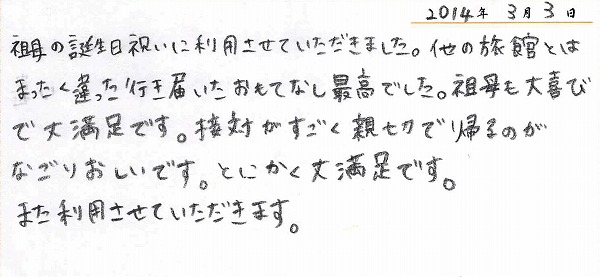 2014年 3月 3日
祖母の誕生日祝いに利用させていただきました。他の旅館とは
まったく違った行き届いたおもてなし最高でした。祖母も大喜び
で大満足です。接対がすごく親切で帰るのが
なごりおしいです。とにかく大満足です。
また利用させていただきます。